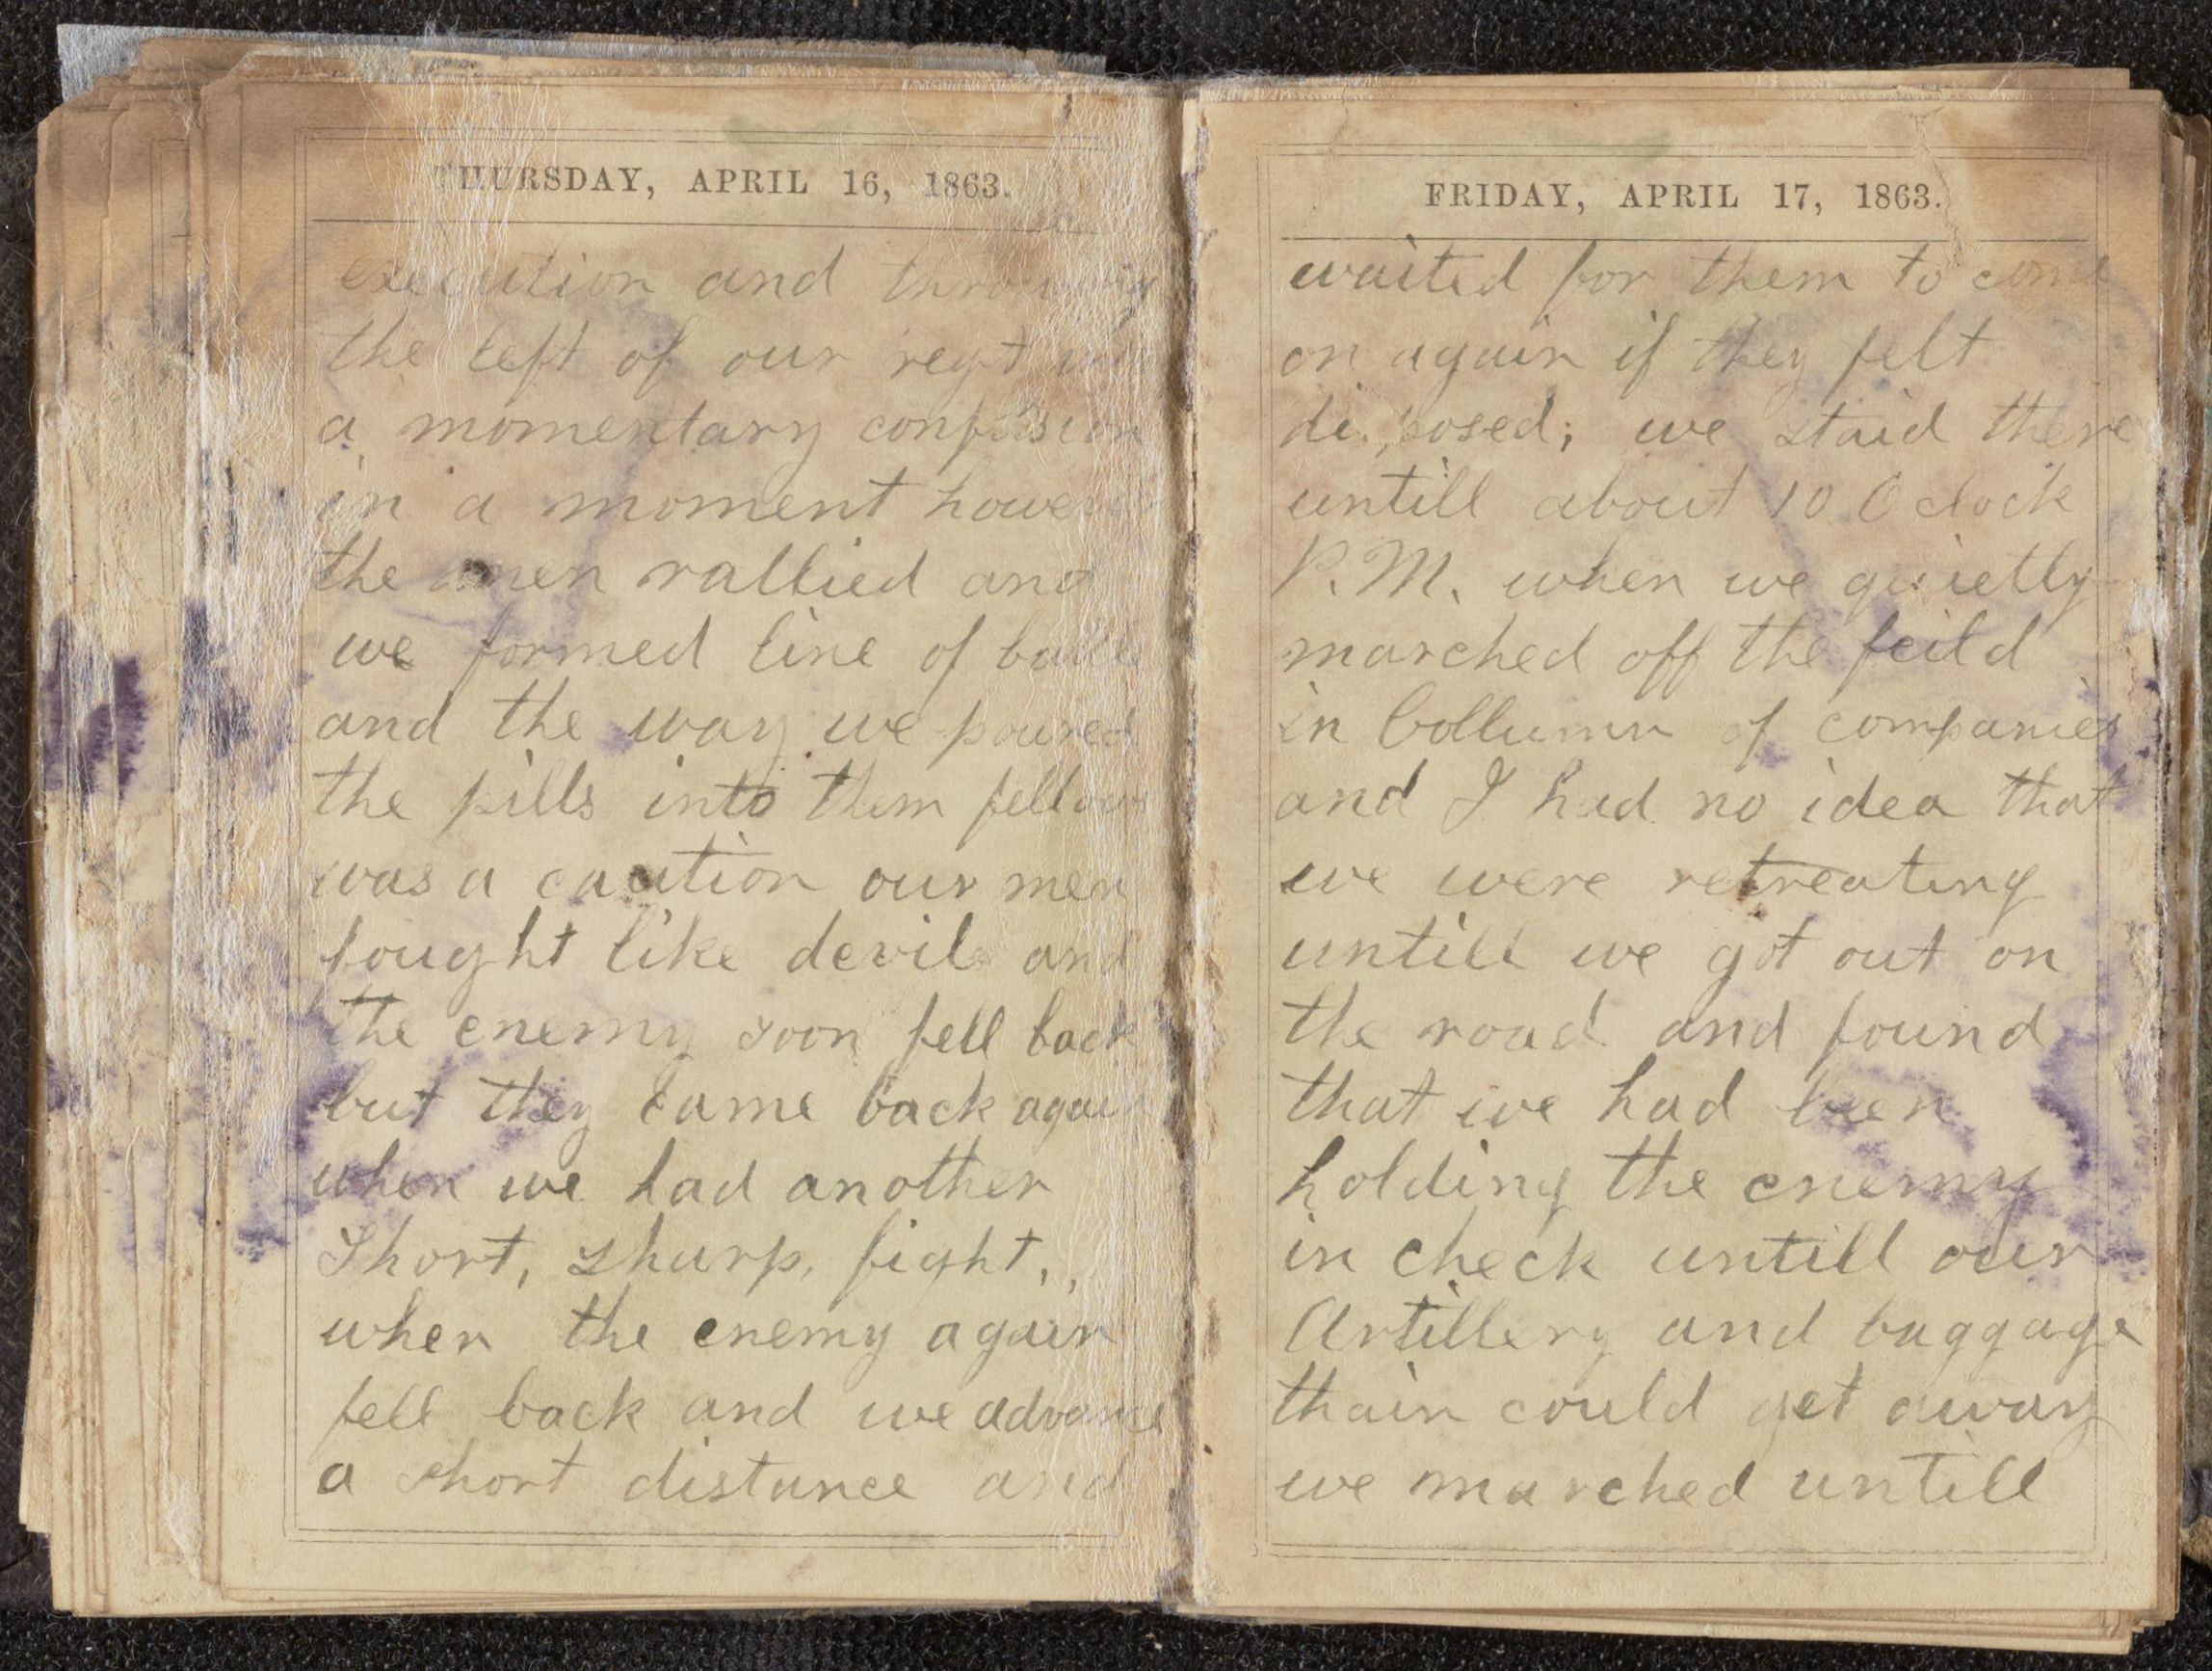 THURSDAY, APRIL 16, 1863.
execution and throwing
the left of our regt
a momentary confusion
in a moment however
the men rallied and
we formed line of battle
and the way we poured
the pills into them fellows
was a caution our men
fought like devils and
the enemy soon fell back
but they came back again
when we had another
Short, sharp, fight,
when the enemy again
fell back and we advance
a short distance and
FRIDAY, APRIL 17, 1863.
waited for them to come
on again if they felt
disposed; we staid there
untill about 10 O clock
P.M. when we quietly
marched off the feild
in Collumn of companies
and I had no idea that
we were retreating
untill we got out on
the road and found
that we had been
holding the enemy
in check untill our
Artillery and baggage
thain could get away
we marched untill